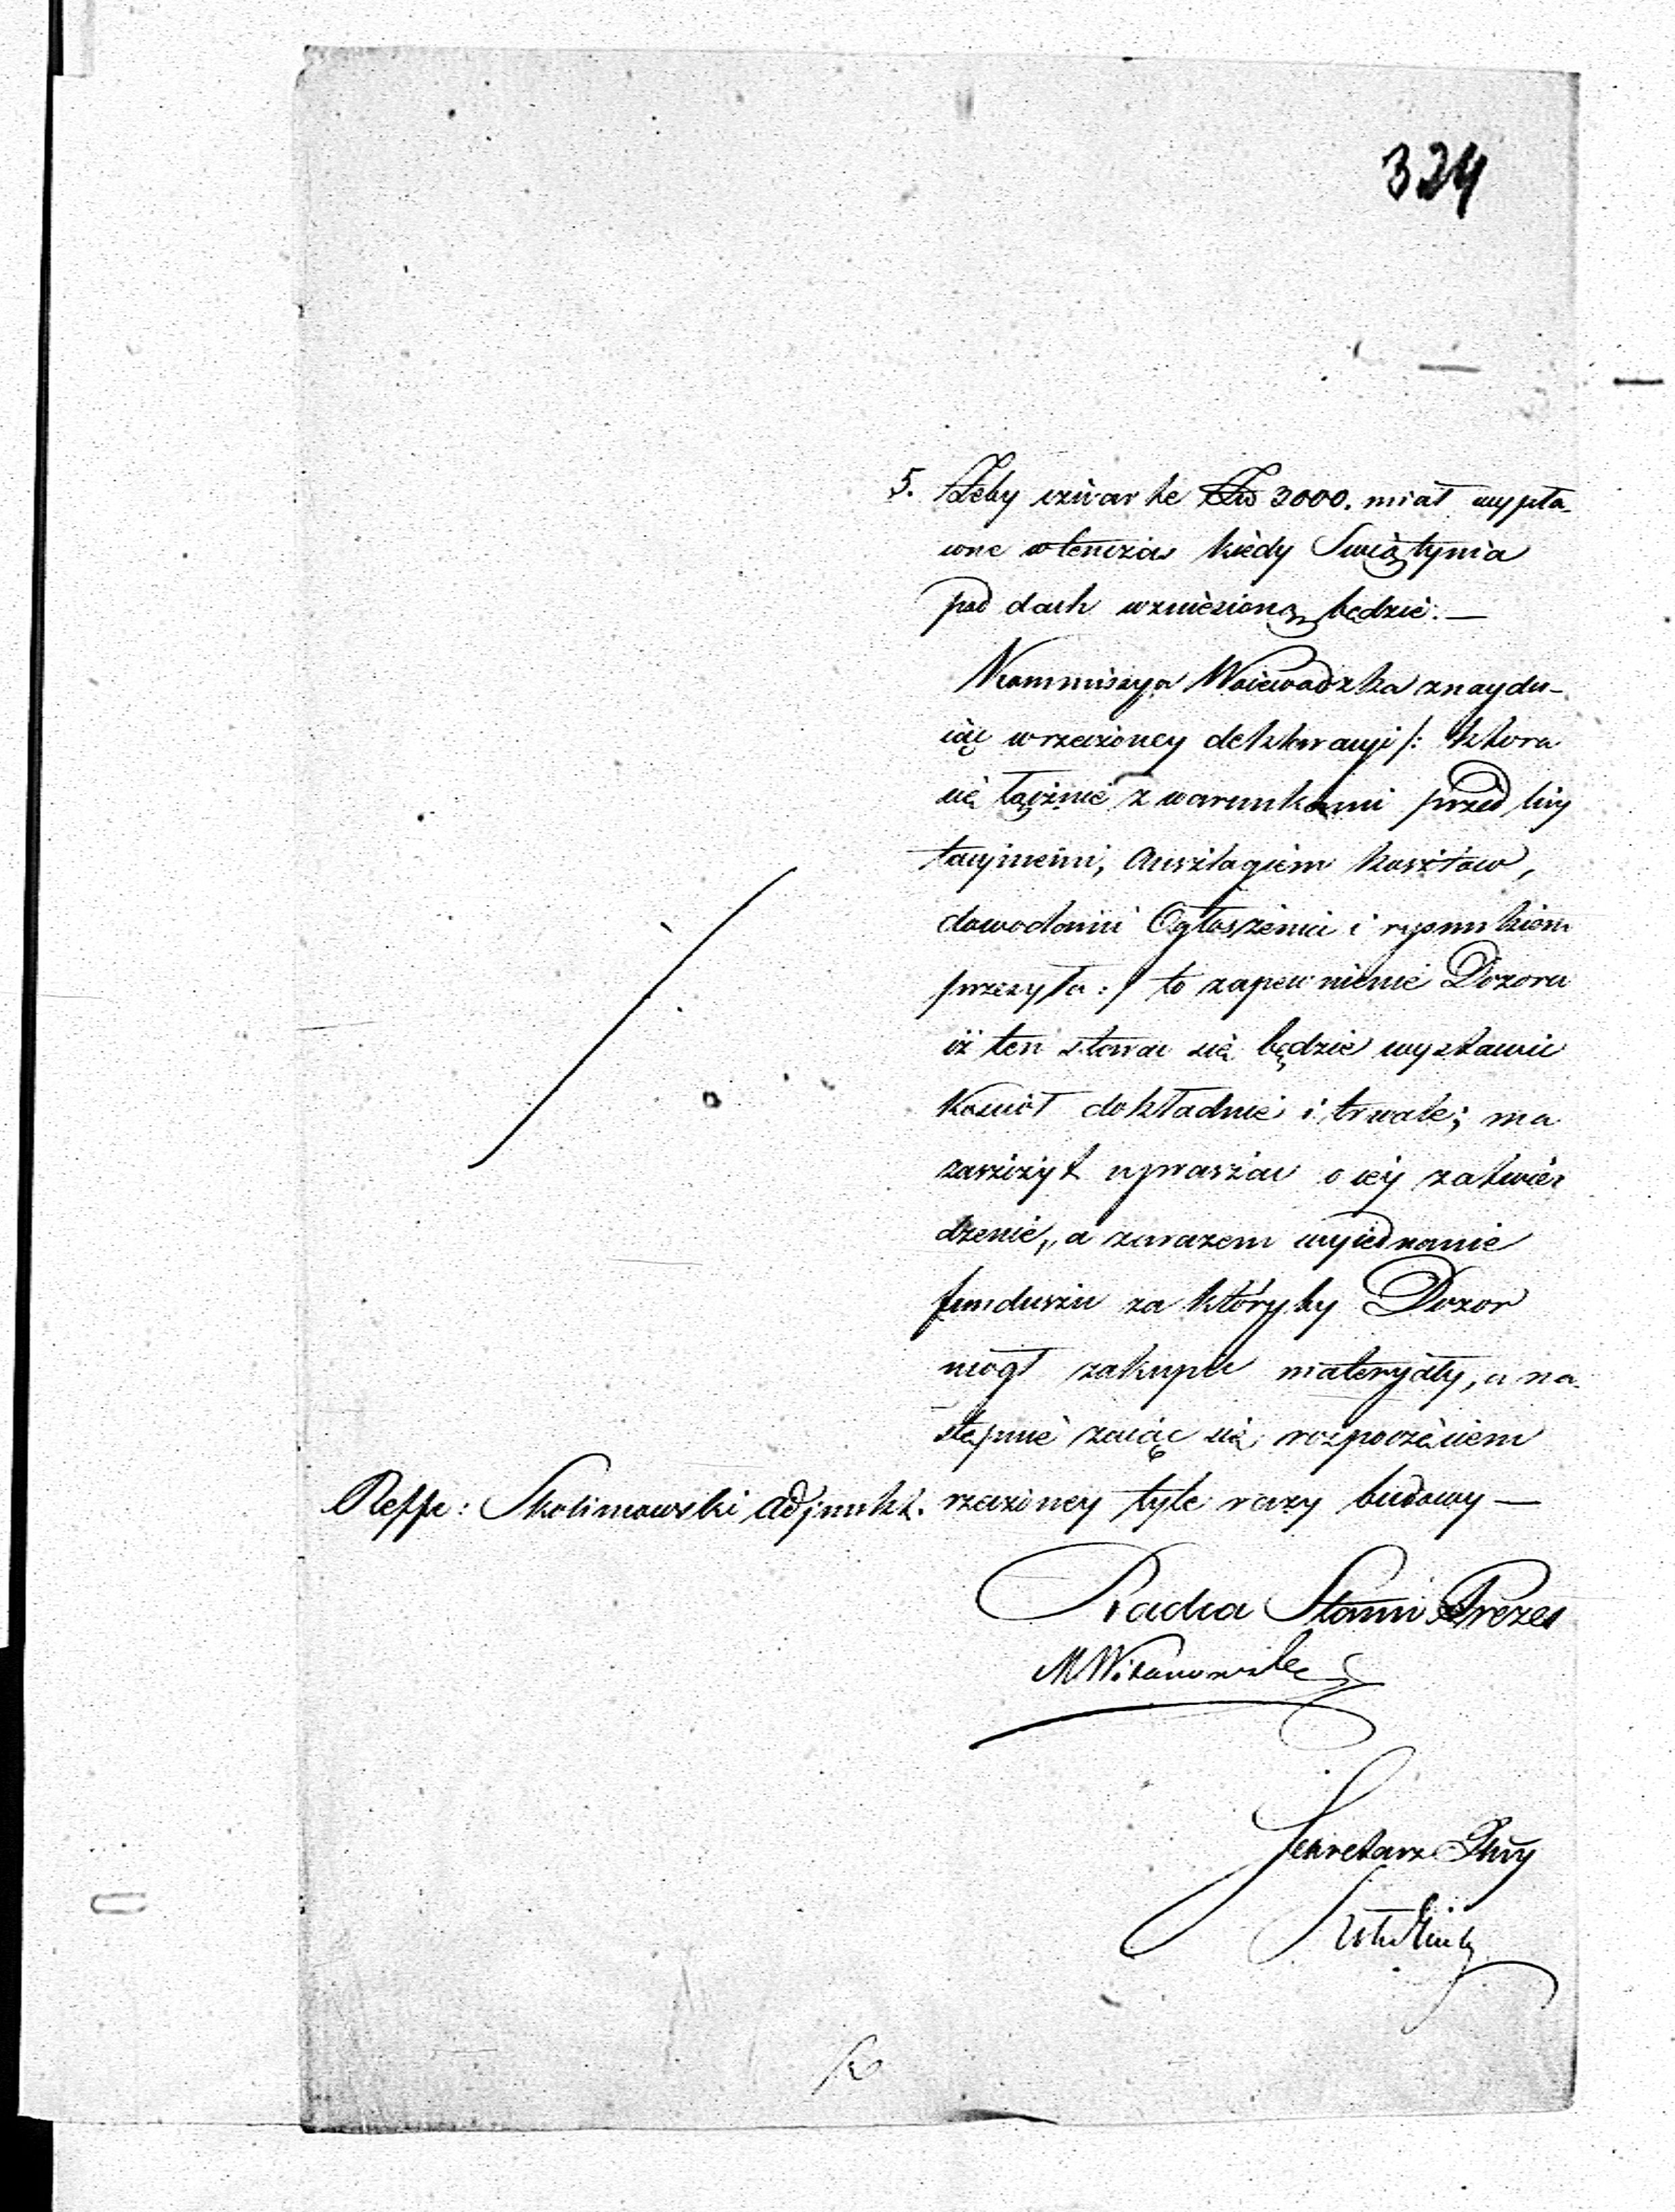 324
5. Żeby czwarte Złw 3000. miał wypła-
cone wtenczas kiedy Swiątynia
pod dach wzniesioną będzie. —
Kommissya Woiewodzka znaydu-
iąc w rzeczoney deklaracyi /: ktora
się łącznie z warunkami przed licy
tacyinemi, Anszlagiem kosztow,
dowodami Ogłoszenia i rysunkiem
przesyła :/ to zapewnienie Dozoru
iż ten starac się będzie wystawic
Kosciół dokładnie i trwale; ma
zaszczyt upraszac o iey zatwier
dzenie, a zarazem wyiednanie
funduszu za któryby Dozor
mogł zakupic materyały, a na-
stępnie zaiąc się rozpoczęciem
rzeczoney tyle razy budowy —
Reffe: Skolimowski Adjunkt.
Radca Stanu Prezes
M Wi
Sekretarz